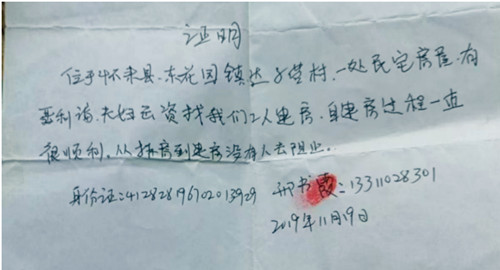 证明
位于怀来县、东花园镇、达子营村、一处民宅房屋、有
利 夫妇 资找我们2人建房、自建房过程一直
很顺利，从拆房到建房没有人去阻止。
身份证：412828196702013929 邢书霞：13311028301
2019年11月19日